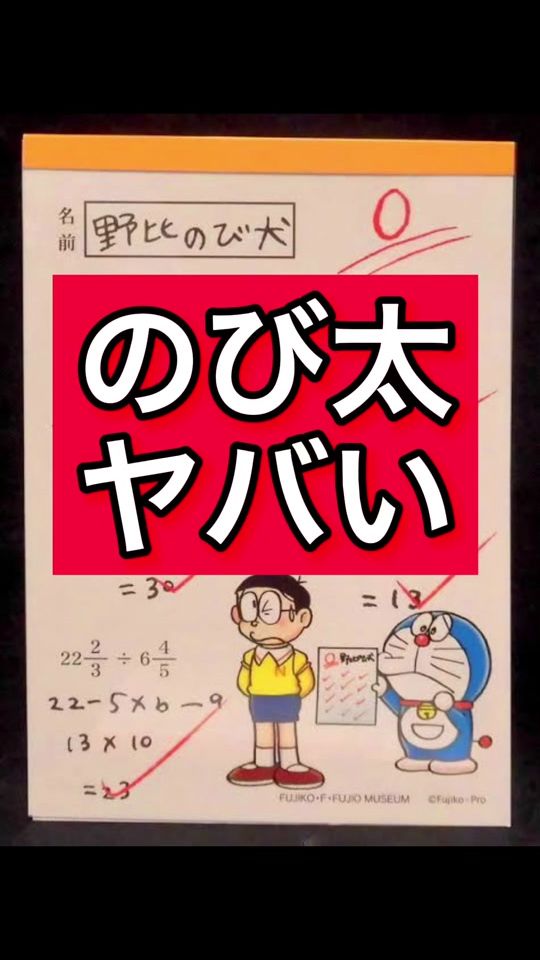 名前
野比のび犬
0
のび太
ヤバい
= 30
= 13
22 2/3 ÷ 6 4/5
22-5×6-9
13×10
=23
0 野比のび犬
N
FUJIKO・F・FUJIO MUSEUM ©Fujiko-Pro